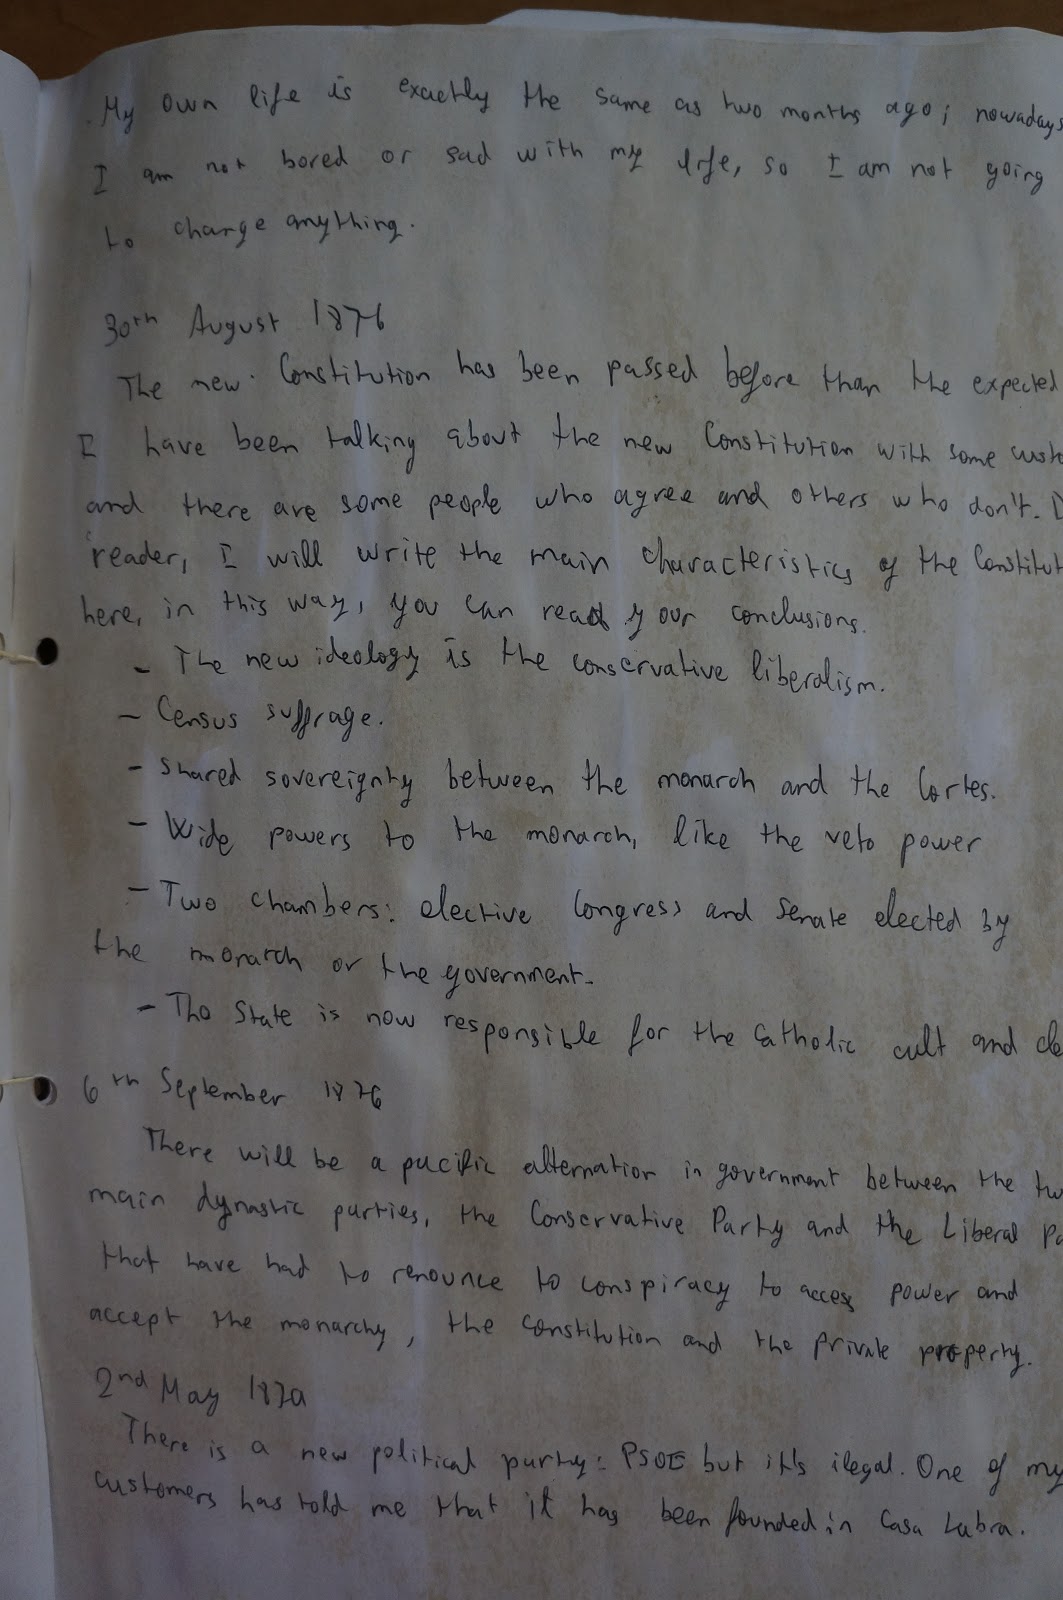 My own life is exactly the same as two months ago; nowadays
I am not bored or sad with my life, so I am not going
to change anything.
30th August 1876
The new Constitution has been passed before than the expected
I have been talking about the new Constitution with some
and there are some people who agree and others who don't.
reader, I will write the main characteristics of the Constitut
here, in this way, you can read your conclusions.
- The new ideology is the conservative liberalism.
- Census suffrage.
- Shared sovereignty between the monarch and the Cortes.
- Wide powers to the monarch, like the veto power
- Two chambers: elective Congress and Senate elected by
the monarch or the government.
- The State is now responsible for the Catholic cult and cle
6th September 1876
There will be a pacific alternation in government between the tw
main dynastic parties, the Conservative Party and the Liberal Pa
that have had to renounce to conspiracy to access power and
accept the monarchy, the constitution and the private property.
2nd May
There is a new political party: PSOE but it's ilegal. One of my
customers has told me that it has been founded in Casa Labra.